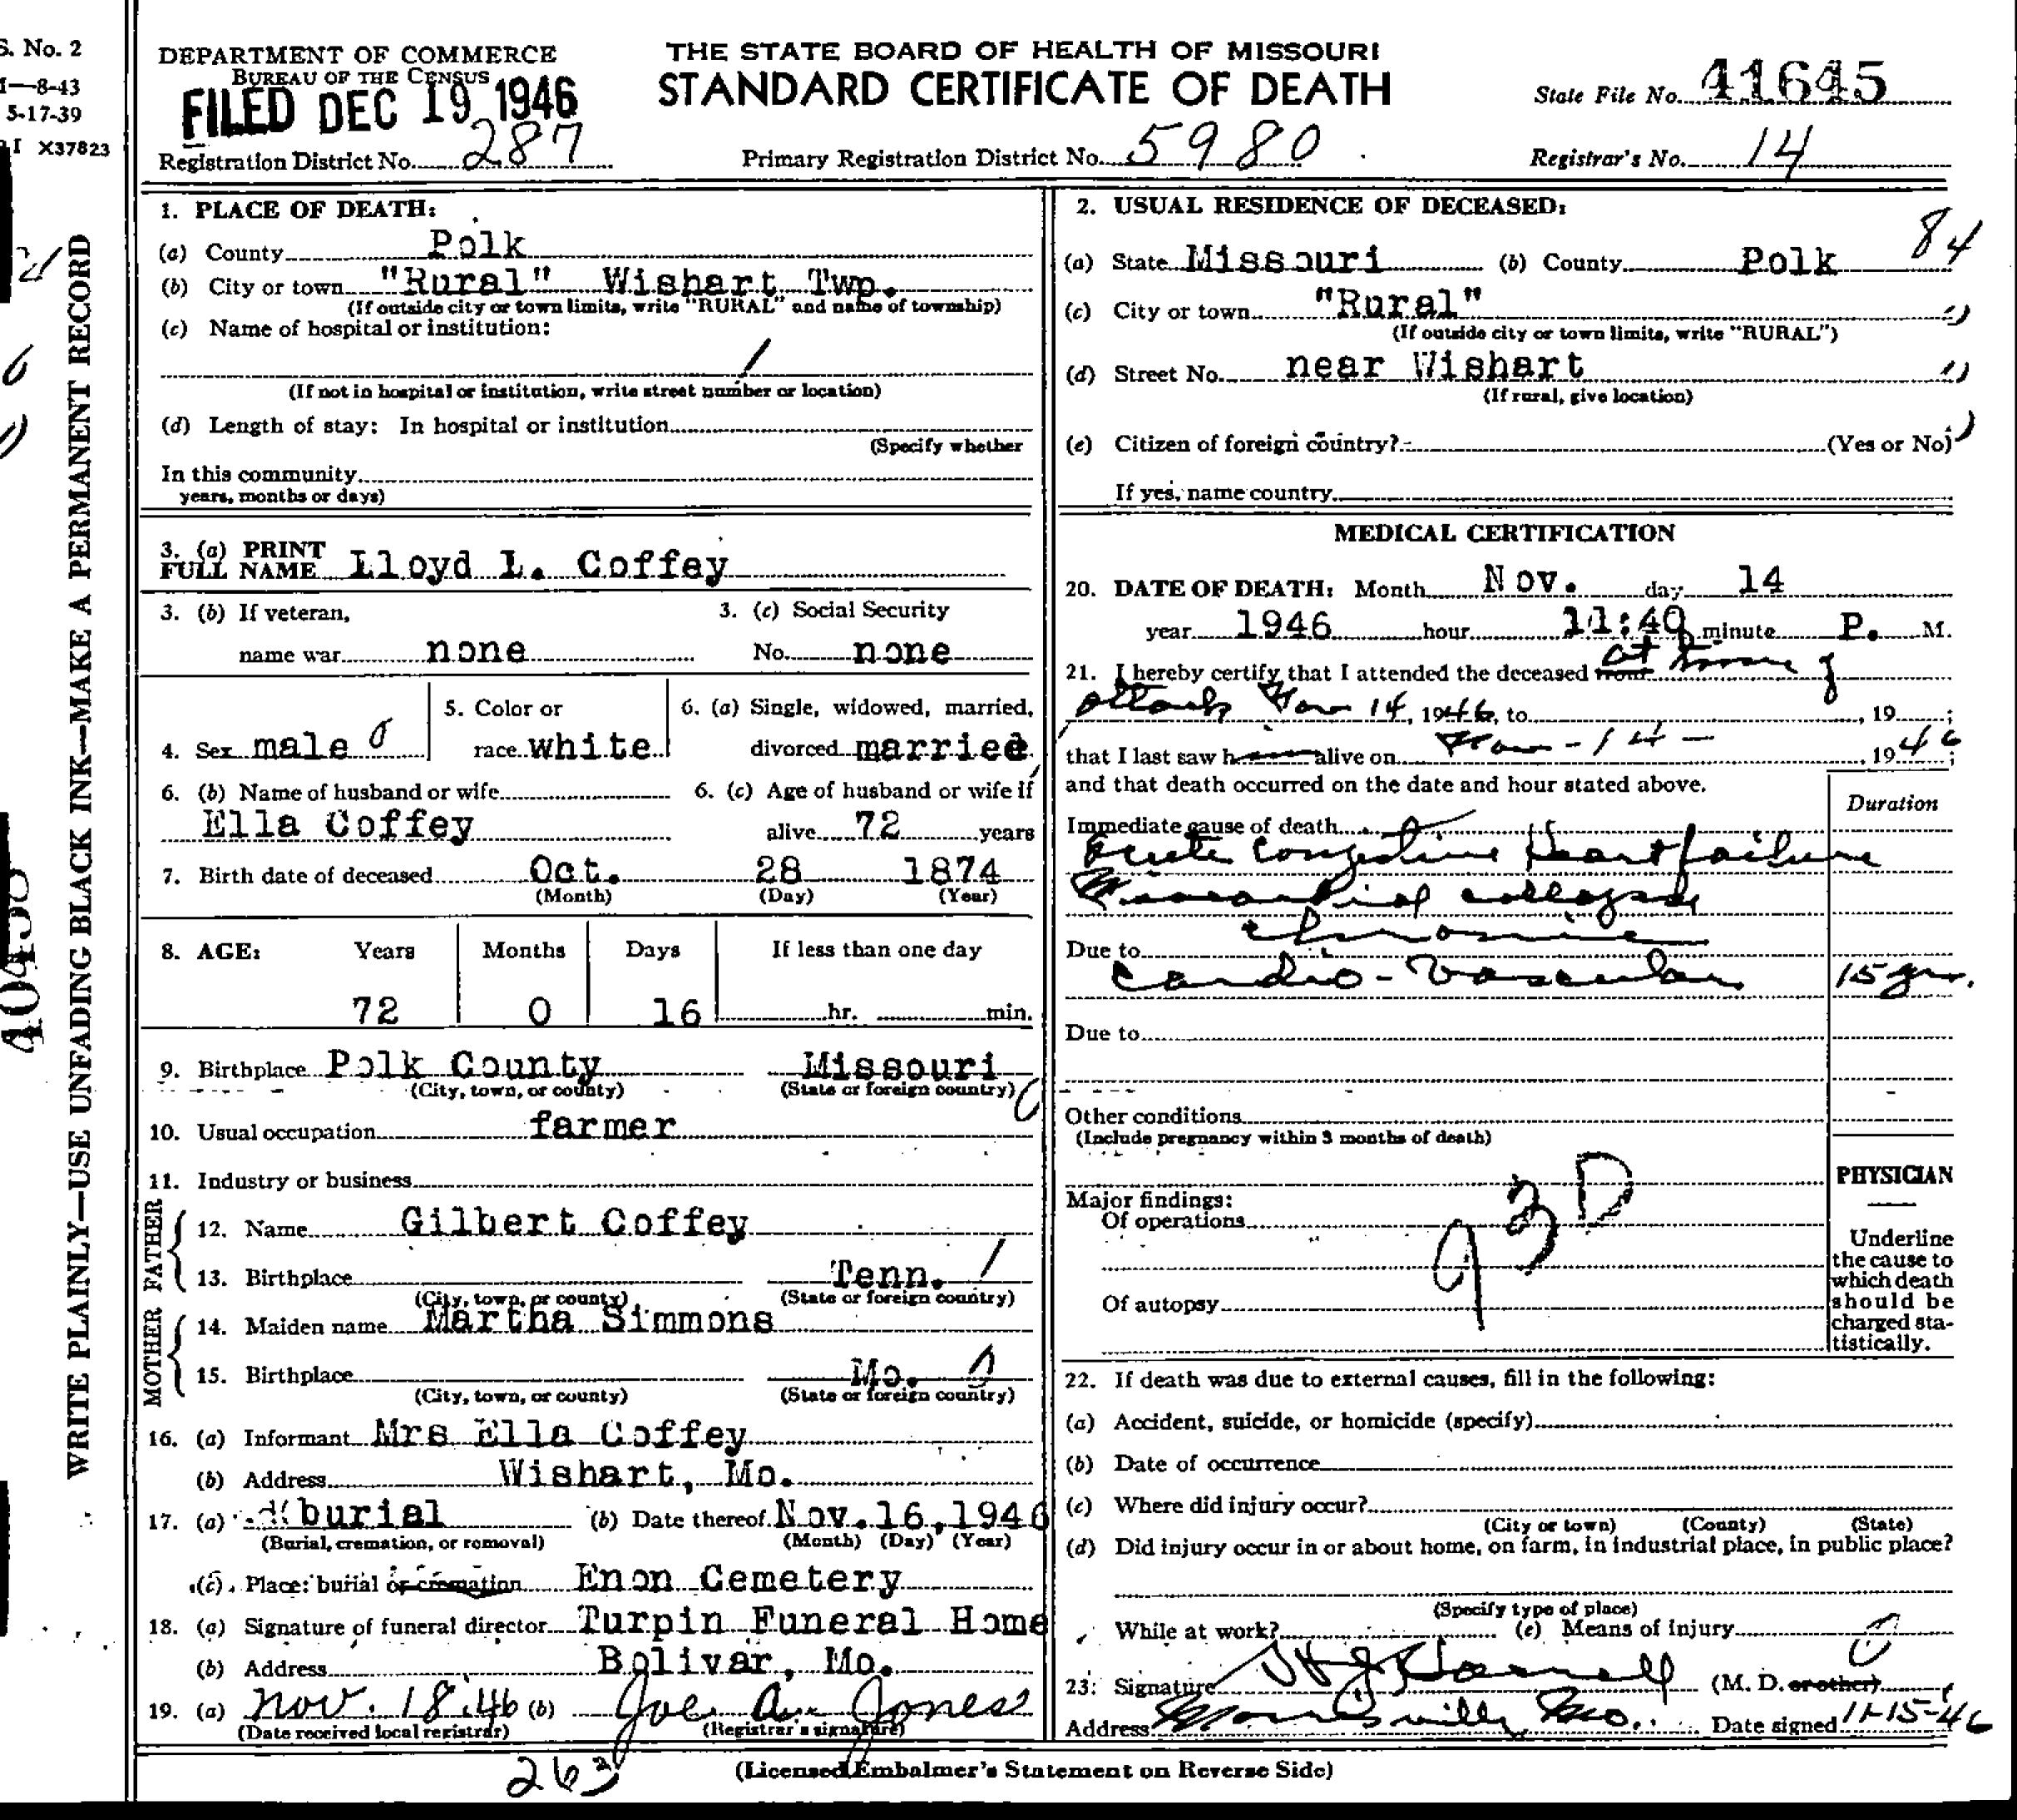 S. No. 2
I—8-43
5-17-39
I X37823
WRITE PLAINLY—USE UNFADING BLACK INK—MAKE A PERMANENT RECORD
DEPARTMENT OF COMMERCE
BUREAU OF THE CENSUS
FILED DEC 19 1946
THE STATE BOARD OF HEALTH OF MISSOURI
STANDARD CERTIFICATE OF DEATH
State File No. 41645
Registration District No. 287
Primary Registration District No. 5980
Registrar's No. 14
1. PLACE OF DEATH:
(a) County Polk
(b) City or town "Rural" Wishart Twp.
(If outside city or town limits, write "RURAL" and name of township)
(c) Name of hospital or institution:
(If not in hospital or institution, write street number or location)
(d) Length of stay: In hospital or institution
(Specify whether
In this community
years, months or days)
2. USUAL RESIDENCE OF DECEASED:
84
(a) State Missouri (b) County Polk
(c) City or town "Rural"
(If outside city or town limits, write "RURAL")
(d) Street No. near Wishart
(If rural, give location)
(e) Citizen of foreign country? (Yes or No)
If yes, name country
3. (a) PRINT
FULL NAME Lloyd L. Coffey
3. (b) If veteran,
name war none
3. (c) Social Security
No. none
4. Sex male
5. Color or
race white
6. (a) Single, widowed, married,
divorced married
6. (b) Name of husband or wife
Ella Coffey
6. (c) Age of husband or wife if
alive 72 years
7. Birth date of deceased Oct. 28 1874
(Month) (Day) (Year)
8. AGE: Years Months Days If less than one day
72 0 16 hr. min.
9. Birthplace Polk County Missouri
(City, town, or county) (State or foreign country)
10. Usual occupation farmer
11. Industry or business
FATHER
12. Name Gilbert Coffey
13. Birthplace Tenn.
(City, town, or county) (State or foreign country)
MOTHER
14. Maiden name Martha Simmons
15. Birthplace Mo.
(City, town, or county) (State or foreign country)
16. (a) Informant Mrs Ella Coffey
(b) Address Wishart, Mo.
17. (a) burial (b) Date thereof Nov. 16, 1946
(Burial, cremation, or removal) (Month) (Day) (Year)
(c) Place: burial or cremation Enon Cemetery
18. (a) Signature of funeral director Turpin Funeral Home
(b) Address Bolivar, Mo.
19. (a) Nov. 18. 46 (b) Joe Jones
(Date received local registrar) (Registrar's signature)
MEDICAL CERTIFICATION
20. DATE OF DEATH: Month Nov. day 14
year 1946 hour 11:40 minute P. M.
21. I hereby certify that I attended the deceased from at time of
attack Nov 14, 1946, to , 19 ;
that I last saw h alive on Nov - 14 - , 1946;
and that death occurred on the date and hour stated above.
Duration
Immediate cause of death
Acute Congestive Heart failure
Myocardial collapse
Due to chronic
Cardio-Vascular 15 yrs.
Due to
Other conditions
(Include pregnancy within 3 months of death)
Major findings:
Of operations
93D
Of autopsy
PHYSICIAN
Underline
the cause to
which death
should be
charged sta-
tistically.
22. If death was due to external causes, fill in the following:
(a) Accident, suicide, or homicide (specify)
(b) Date of occurrence
(c) Where did injury occur?
(City or town) (County) (State)
(d) Did injury occur in or about home, on farm, in industrial place, in public place?
(Specify type of place)
While at work? (e) Means of injury
23. Signature (M. D. or other)
Address Morrisville Mo. Date signed 11-15-46
263
(Licensed Embalmer's Statement on Reverse Side)